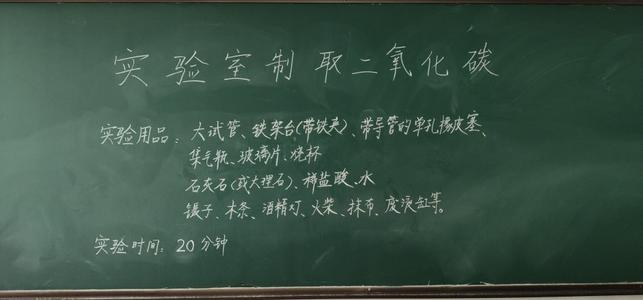 实验室制取二氧化碳
实验用品：大试管、铁架台(带铁夹)、带导管的单孔橡皮塞、
集气瓶、玻璃片、烧杯
石灰石(或大理石)、稀盐酸、水
镊子、木条、酒精灯、火柴、抹布、废液缸等。
实验时间：20分钟